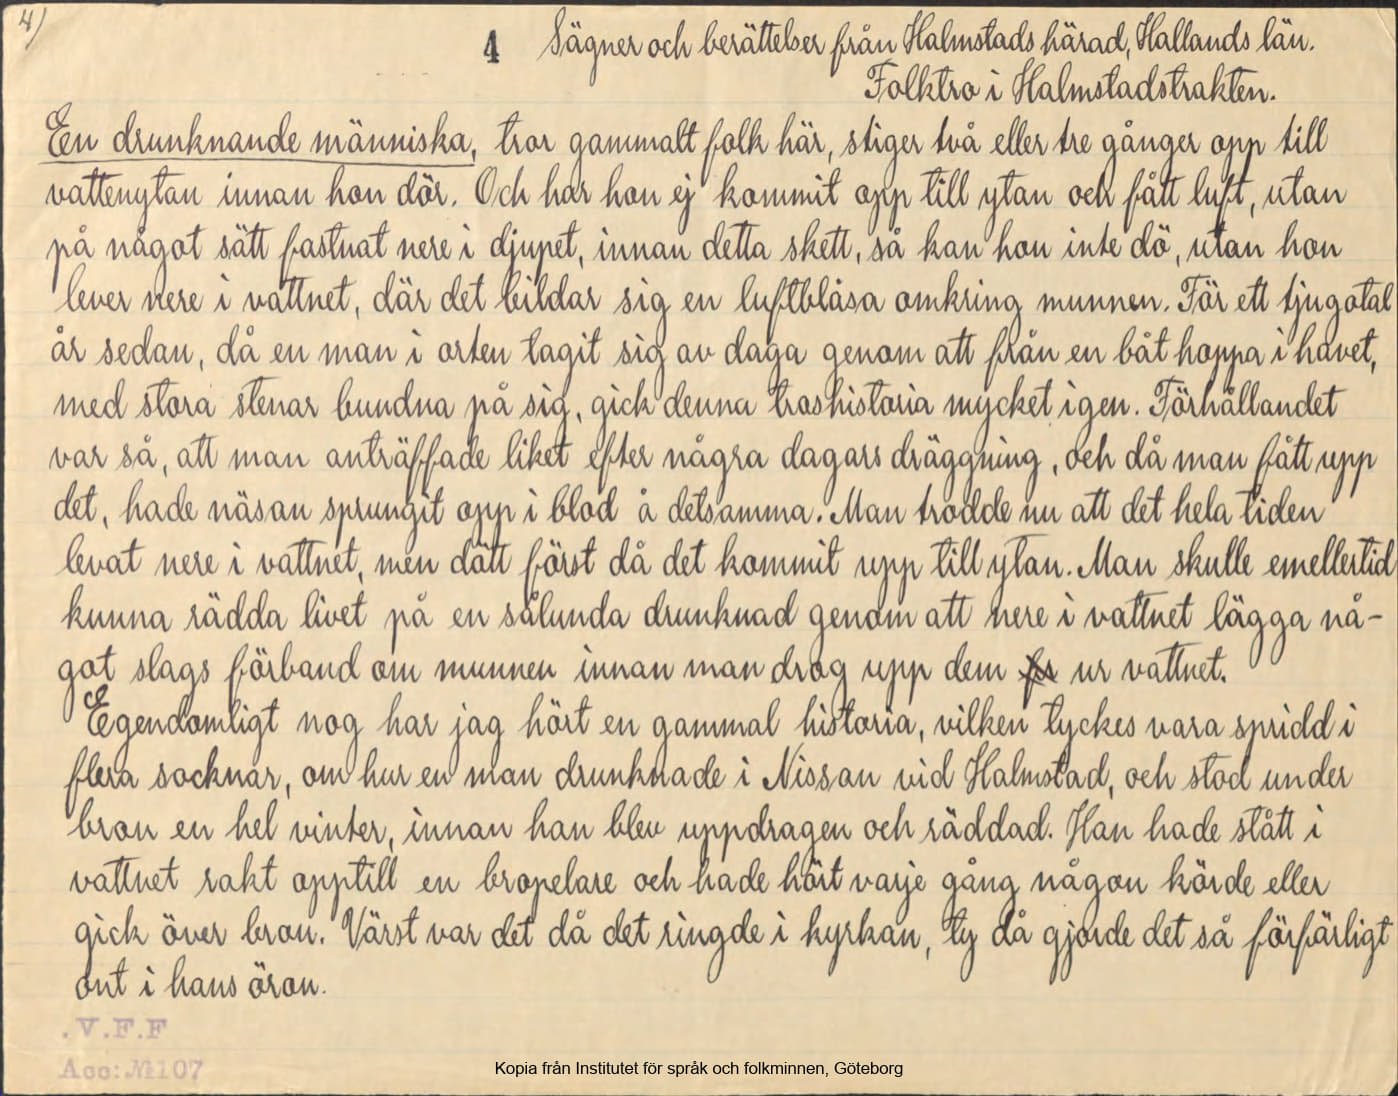 4)
4 Sägner och berättelser från Halmstads härad, Hallands län.
Folktro i Halmstadstrakten.
En drunknande människa, tror gammalt folk här, stiger två eller tre gånger opp till
vattenytan innan hon dör. Och har hon ej kommit opp till ytan och fått luft, utan
på något sätt fastnat nere i djupet, innan detta skett, så kan hon inte dö, utan hon
lever nere i vattnet, där det bildar sig en luftblåsa omkring munnen. För ett tjugotal
år sedan, då en man i orten tagit sig av daga genom att från en båt hoppa i havet,
med stora stenar bundna på sig, gick denna troshistoria mycket igen. Förhållandet
var så, att man anträffade liket efter några dagars dräggning, och då man fått upp
det, hade näsan sprungit opp i blod å detsamma. Man trodde nu att det hela tiden
levat nere i vattnet, men dött först då det kommit upp till ytan. Man skulle emellertid
kunna rädda livet på en sålunda drunknad genom att nere i vattnet lägga nå-
got slags förband om munnen innan man drog upp dem ur vattnet.
Egendomligt nog har jag hört en gammal historia, vilken tyckes vara spridd i
flera socknar, om hur en man drunknade i Nissan vid Halmstad, och stod under
bron en hel vinter, innan han blev uppdragen och räddad. Han hade stått i
vattnet rakt opptill en bropelare och hade hört varje gång någon körde eller
gick över bron. Värst var det då det ringde i kyrkan, ty då gjorde det så förfärligt
ont i hans öron.
.V.F.F
Acc: M107
Kopia från Institutet för språk och folkminnen, Göteborg